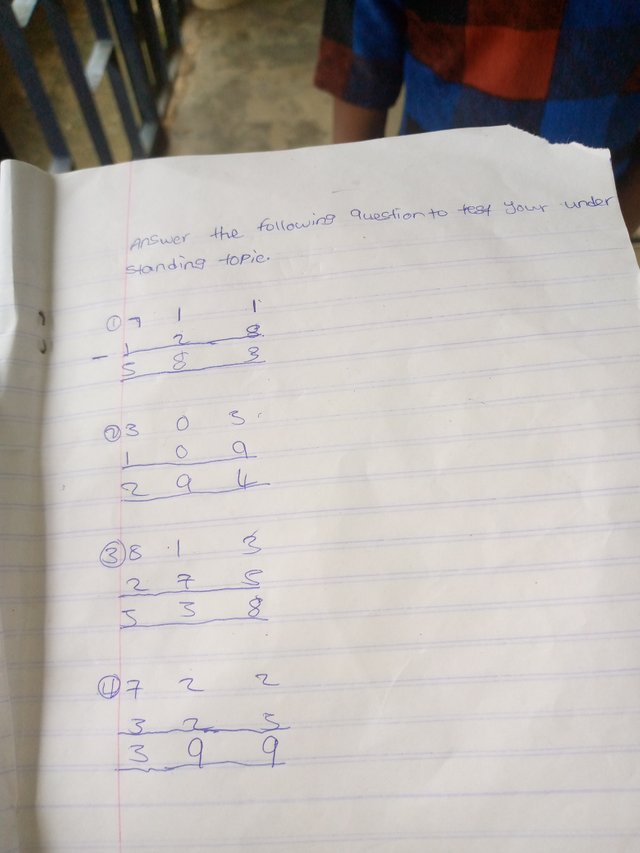 Answer the following question to test your under
standing topic.
① 7 1 1
- 1 2 8
5 8 3
② 3 0 3
1 0 9
2 9 4
③ 8 1 3
2 7 5
5 3 8
④ 7 2 2
3 2 3
3 9 9